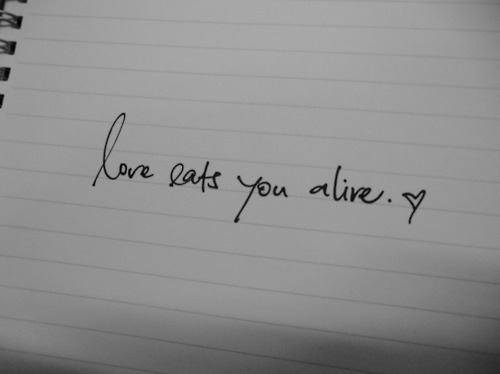 love eats you alive. ♡